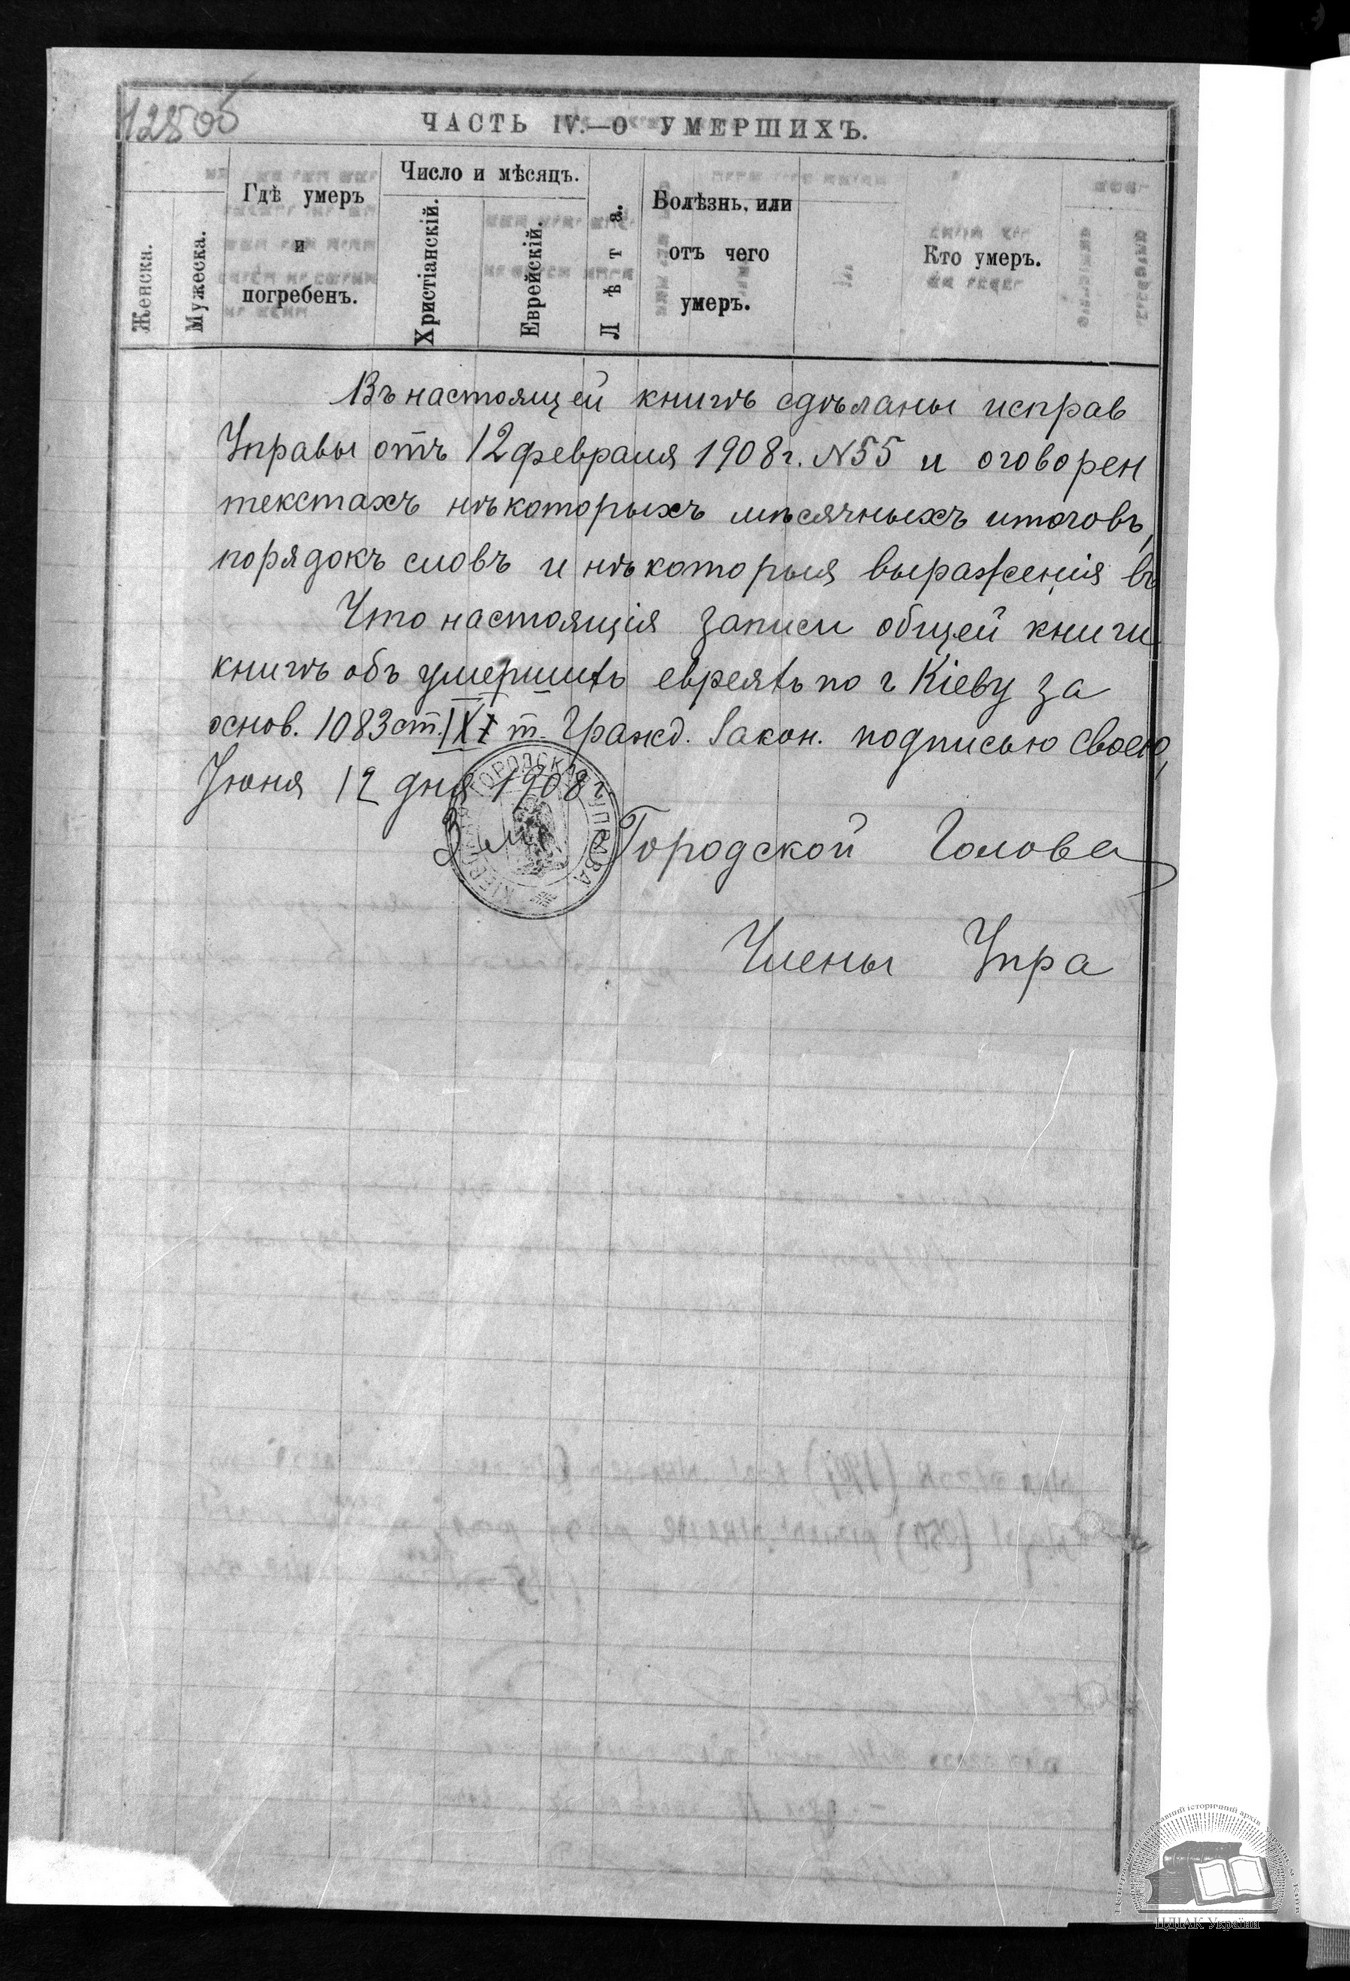 128об
ЧАСТЬ IV.—О УМЕРШИХЪ.
Женска.
Мужеска.
Гдѣ умеръ
и
погребенъ.
Число и мѣсяцъ.
Христіанскій.
Еврейскій.
Лѣта.
Болѣзнь, или
отъ чего
умеръ.
Кто умеръ.
Въ настоящей книгѣ сдѣланы исправ
Управы отъ 12 февраля 1908 г. N 55 и оговорен
текстахъ нѣкоторыхъ мѣсячныхъ итоговъ,
порядокъ словъ и нѣкоторыя выраженія въ
Что настоящія записи общей книги
книгѣ объ умершихъ евреяхъ по г Кіеву за
основ. 1083 ст. IX т. Гражд. Закон. подписью своею,
Іюня 12 дня 1908 г.
КІЕВСКАЯ ГОРОДСКАЯ УПРАВА
Городской Голова
Члены Упра
ЦДІАК України